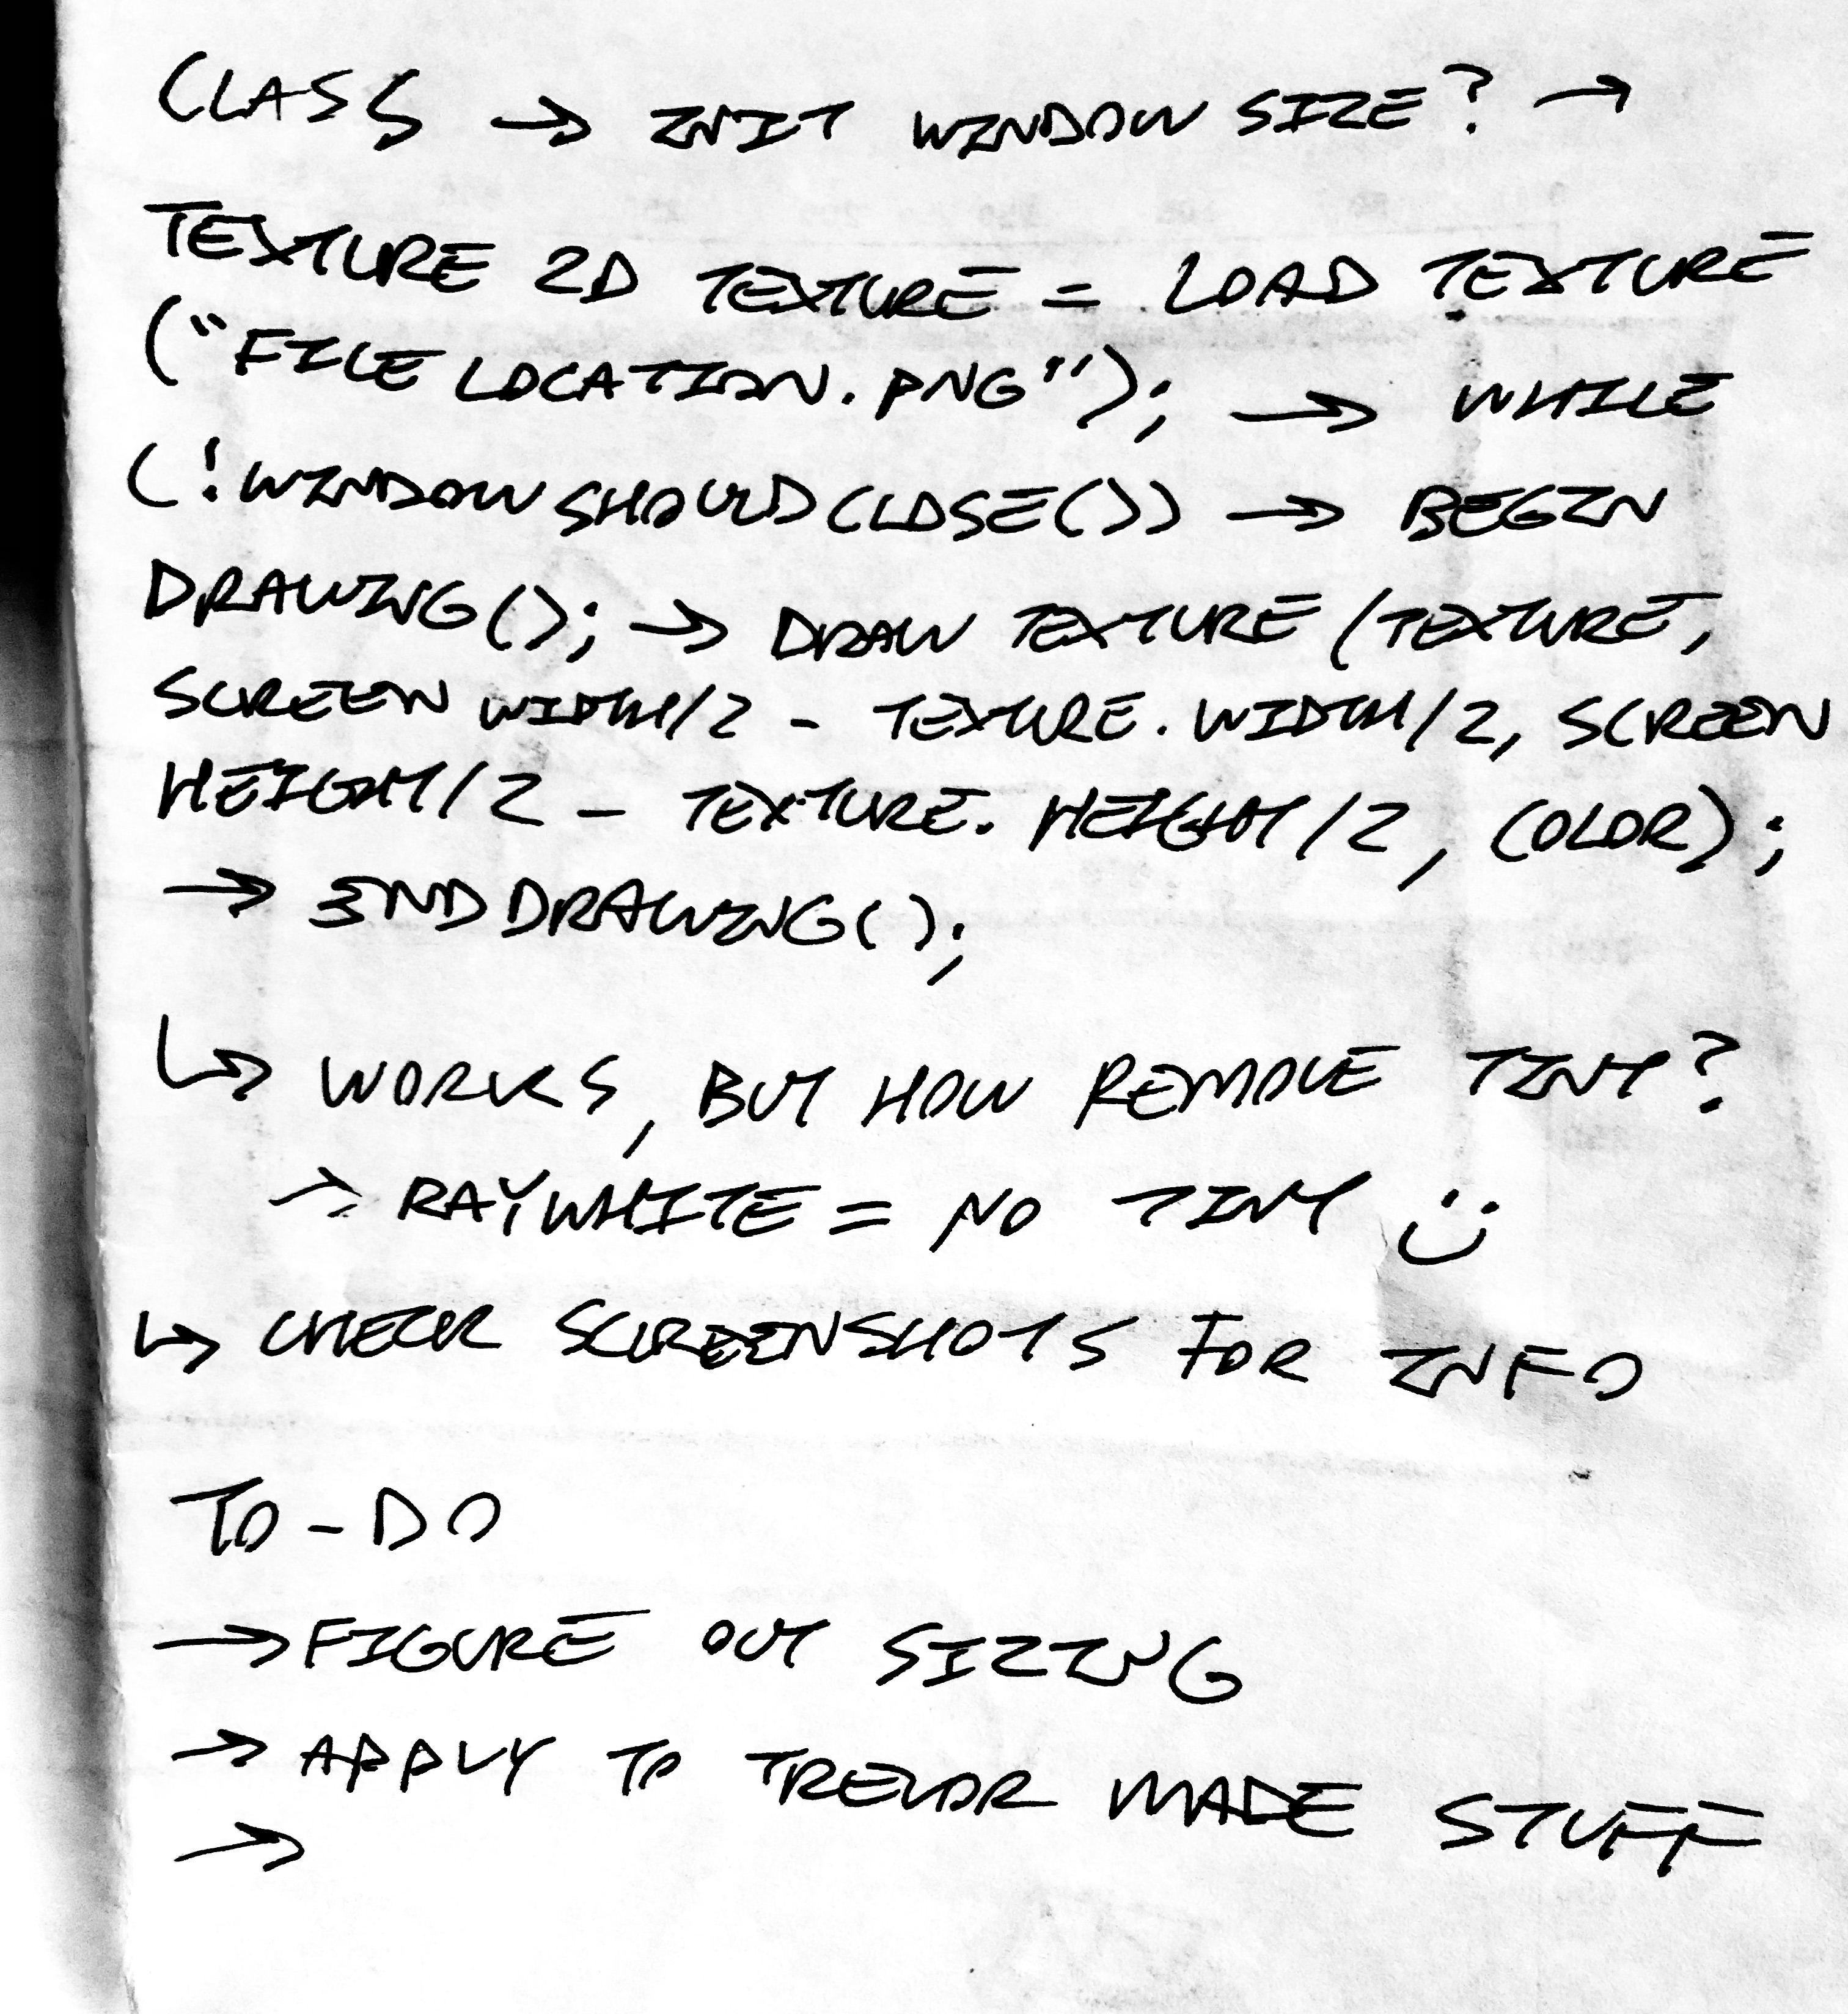 CLASS → INIT WINDOW SIZE? →
TEXTURE 2D TEXTURE = LOAD TEXTURE
("FILE LOCATION.PNG"); → WHILE
(!WINDOWSHOULDCLOSE()) → BEGIN
DRAWING(); → DRAW TEXTURE (TEXTURE,
SCREEN WIDTH/2 - TEXTURE.WIDTH/2, SCREEN
HEIGHT/2 - TEXTURE.HEIGHT/2, COLOR);
→ END DRAWING();
↳ WORKS, BUT HOW REMOVE TINT?
→ RAYWHITE = NO TINT :)
↳ CHECK SCREENSHOTS FOR INFO
TO-DO
→ FIGURE OUT SIZING
→ APPLY TO TREVOR MADE STUFF
→